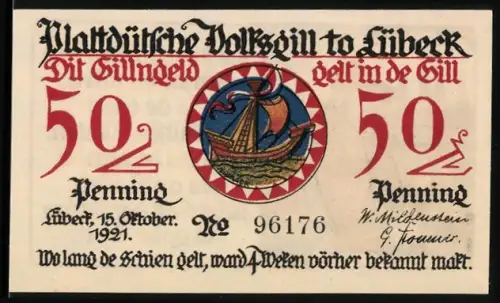 Plattdütsche Volksgill to Lübeck
Dit Gillngeld gelt in de Gill
50 50
Penning Penning
Lübeck, 15. Oktober. 1921.
No 96176
W. Mildenstein
Wo lang de Schien gelt, ward 4 Weken vörher bekannt makt.